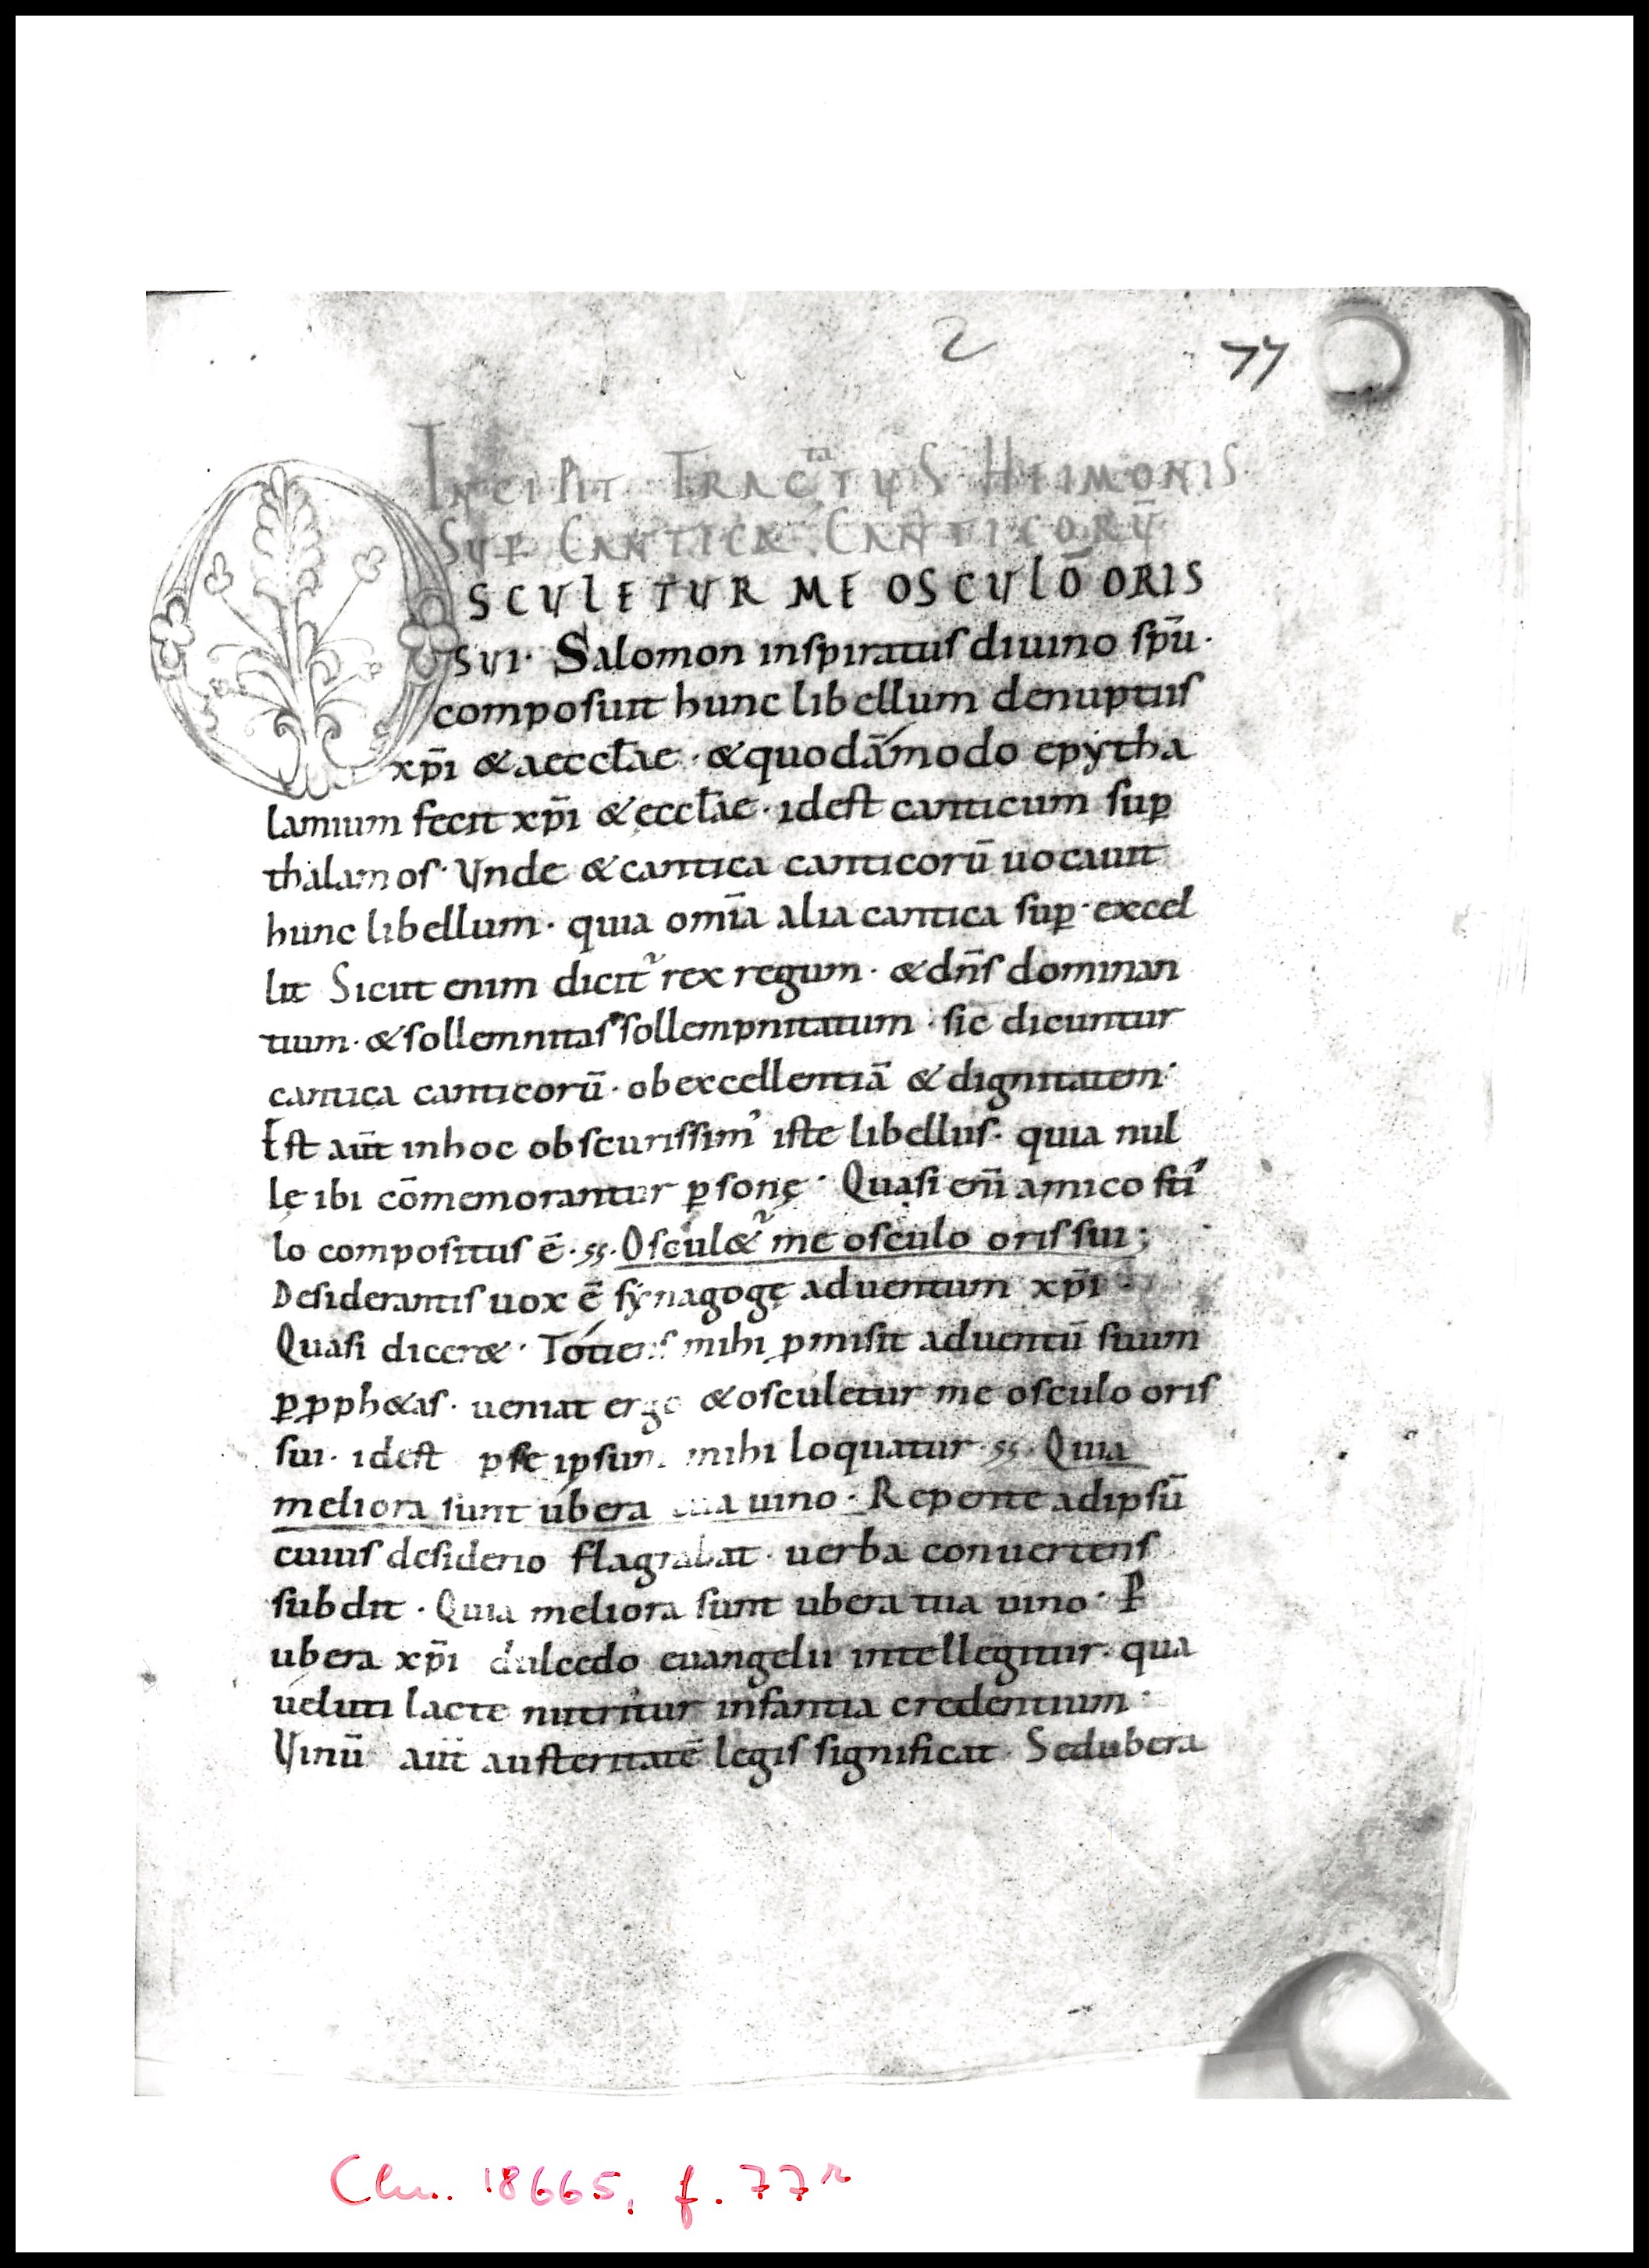 2
77
INCIPIT TRACTATUS HEIMONIS
SUP CANTICA CANTICORŪ
OSCULETUR ME OSCULŌ ORIS
SVI· Salomon inſpiratuſ diuino ſpū·
compoſuit hunc libellum denuptiiſ
xp̄i & aeccl̄ae · & quodāmodo epytha
lamium fecit xp̄i & ęccl̄ae · idest canticum ſuꝑ
thalamoſ· Vnde & cantica canticorū uocauit
hunc libellum · quia om̄ia alia cantica ſuꝑ·excel
lit Sicut enim dicit᷑ rex regum · & dn̄ſ dominan
tium· & ſollemnitaſ ſollempnitatum · ſic dicuntur
cantica canticorū · ob excellentiā & dignitatem·
Est aūt inhoc obſcuriſſim᾽ iſte libelluſ· quia nul
lę ibi cōmemorantur ꝑſonę · Quaſi enī amico ſti
lo compoſituſ ē · Oſcul&᷑ me oſculo oriſ ſui;
Deſiderantiſ uox ē ſynagogę aduentum xp̄i
Quaſi dicer& · Totienſ mihi ꝓmiſit aduentū ſuum
ꝑ ꝓph&aſ · ueniat ergo & oſculetur me oſculo oriſ
ſui · idest ꝑ ſe ipſum mihi loquatur · Quia
meliora ſunt ubera tua uino · Repente adipſū
cuiuſ deſiderio flagrabat · uerba conuertenſ
ſubdit · Quia meliora ſunt ubera tua uino · P̱
ubera xp̄i dulcedo euangelii intellegitur · qua
ueluti lacte nutritur infantia credentium ·
Vinū aūt auſteritatē legiſ ſignificat Sed ubera
Clm. 18665, f. 77r